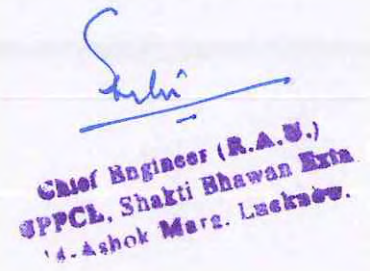 Chief Engineer (R.A.U.)
UPPCL, Shakti Bhawan Extn
14-Ashok Marg. Lucknow.